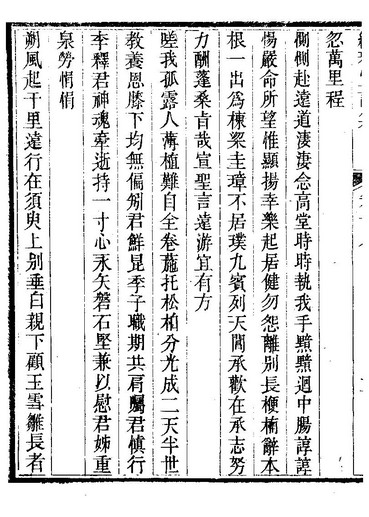 忽萬里程
側側赴遠道淒淒念高堂時時執我手黯黯迴中腸諄諄
惕嚴命所望惟顯揚幸樂起居健勿怨離別長梗楠辭本
根一出爲棟梁圭璋不居璞九賓列天閶承歡在承志努
力酬蓬桑旨哉宣聖言遠游宜有方
嗟我孤露人薄植難自全卷葹托松柏分光成二天半世
教養恩膝下均無偏矧君鮮昆季子職期共肩屬君愼行
李釋君神魂牽逝持一寸心永矢磐石堅兼以慰君姊重
泉勞悁悁
朔風起千里遠行在須臾上別垂白親下顧玉雪雛長者